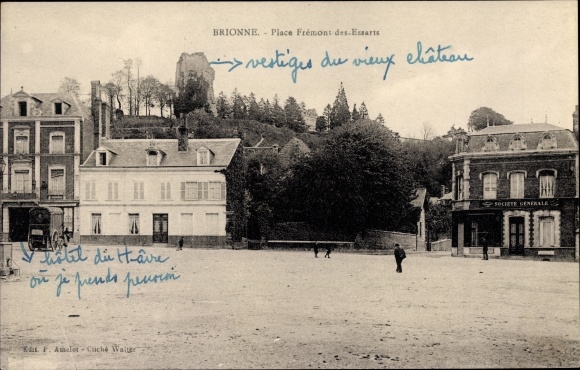 BRIONNE. - Place Frémont-des-Essarts
→ vestiges du vieux château
SOCIÉTÉ GÉNÉRALE
hôtel du Hâvre
où je prends pension
Edit. P. Amelot - Cliché Walter